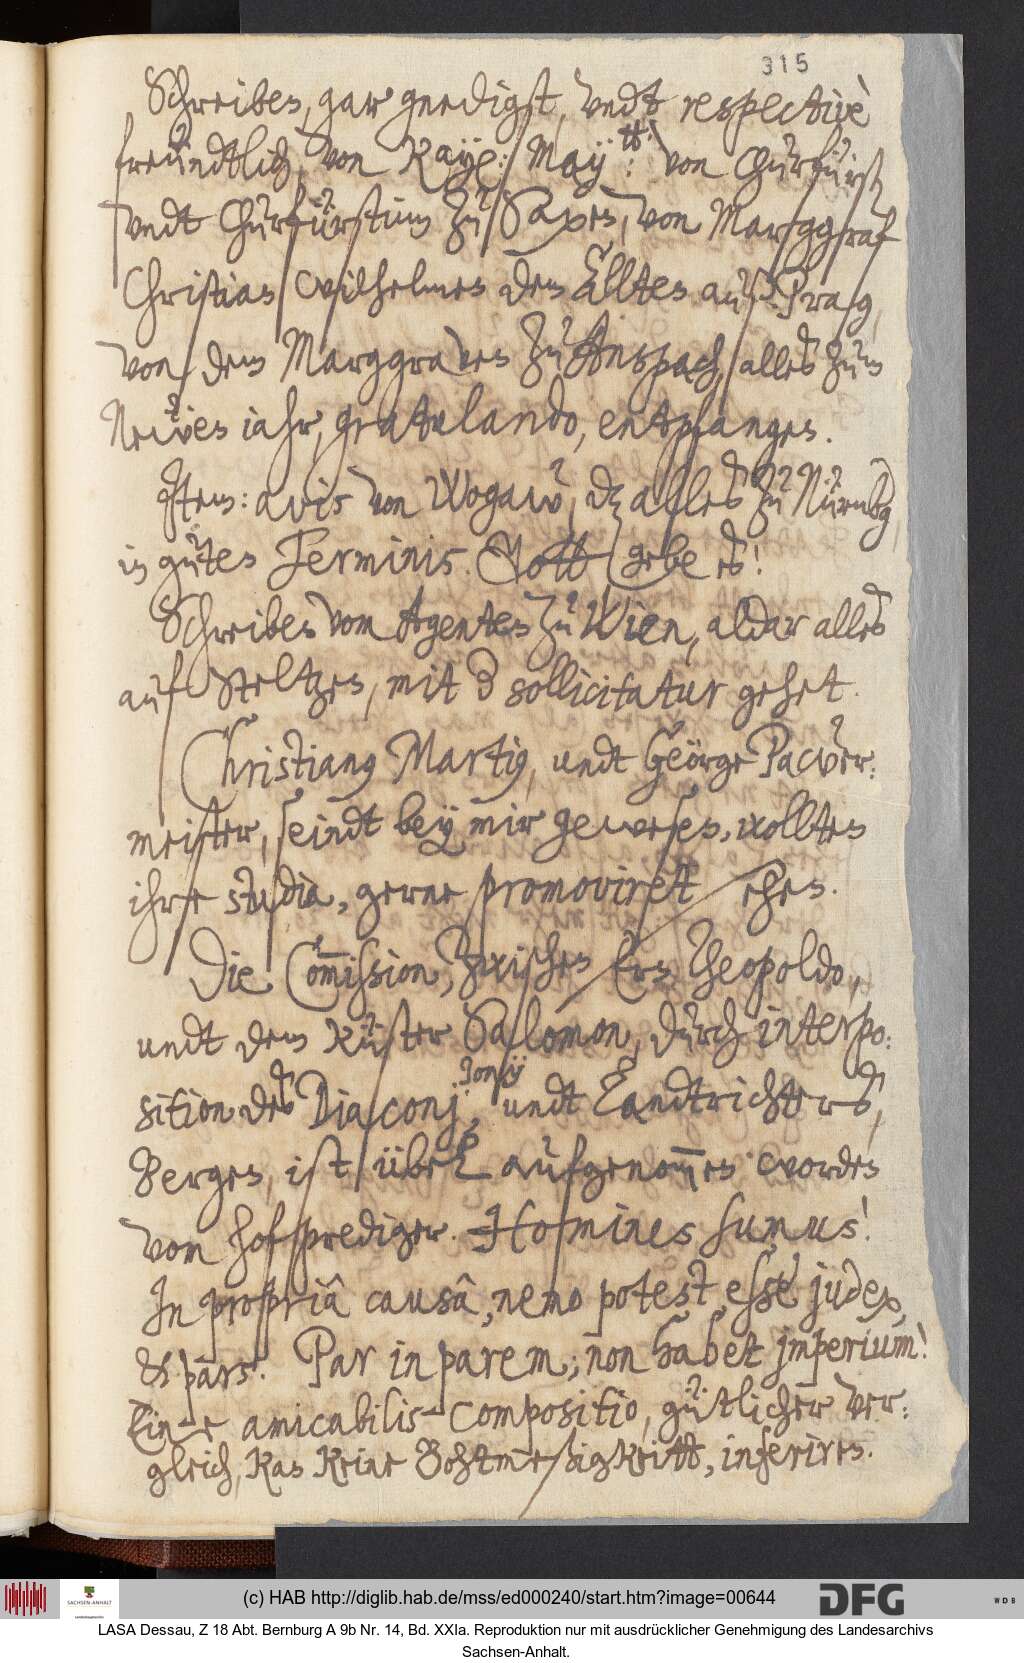 315
Schreiben, gar gnedigst, undt respectivè
freündtlich, von Kay: May:tt: von Churfürst
undt Churfürstinn zu Saxen, von Marggraf
Christian Wilhelmen dem Elltern auß Prag,
von dem Marggraven zu Anspach, alles zum
Neẅen iahr, gratulando, entpfangen.
Item: avis von Wogaw, dz alles zu Nürnbg
in guten Terminis. Gott gebe es!
Schreiben vom Agenten zu Wien, aldar alles
auf Steltzen, mit d sollicitatur gehet.
Christianus Martius, undt George Pacwer:
meister, seindt bey mir gewesen, wollten
ihre studia, gerne promoviret sehen.
Die Commission, zwischen Ern Theopoldo,
undt dem Küster Salomon, durch interpo:
sition des Diaconj, Jonij undt Landtrichters,
Bergen, ist übel aufgenommen worden
vom hofprediger. Homines sumus!
In propriâ causâ, nemo potest, esse judex,
& pars. Par in parem, non habet jmperium!
Eine amicabilis Compositio, gütlicher ver:
gleich, kan keine Bohtmeßigkeitt, inferiren.
(c) HAB http://diglib.hab.de/mss/ed000240/start.htm?image=00644
SACHSEN-ANHALT
DFG
WDB
LASA Dessau, Z 18 Abt. Bernburg A 9b Nr. 14, Bd. XXIa. Reproduktion nur mit ausdrücklicher Genehmigung des Landesarchivs
Sachsen-Anhalt.